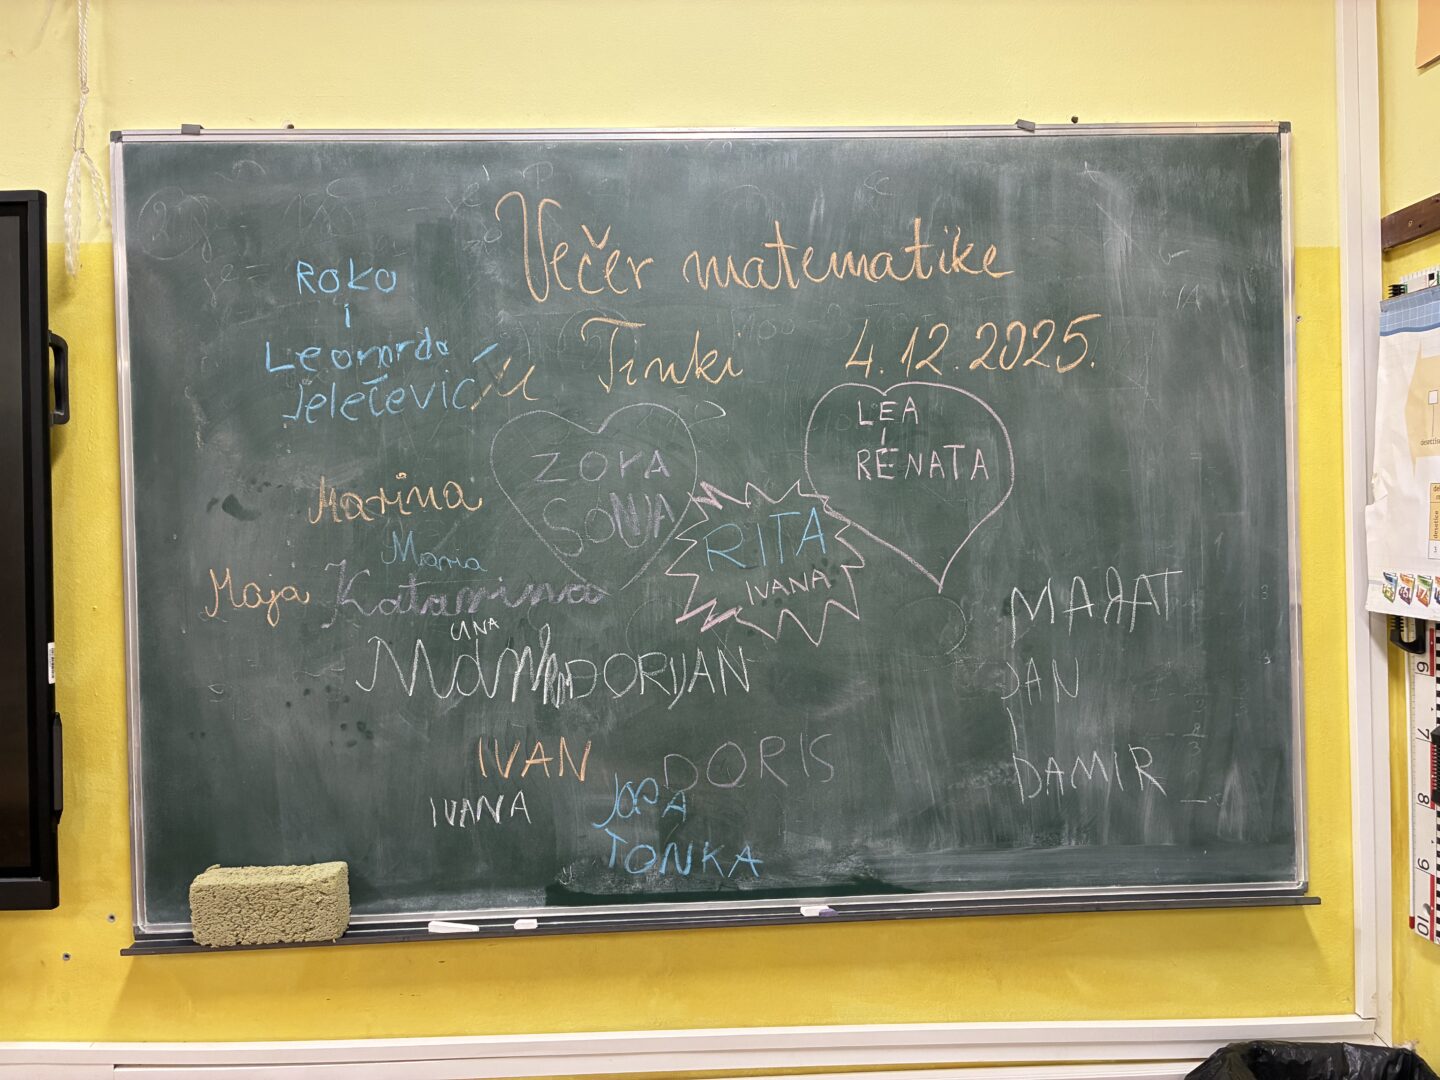 Večer matematike
u Tinki 4.12.2025.
Roko
i
Leonardo
Jeletević
ZORA
SONJA
LEA
i
RENATA
RITA
IVANA
Marina
Maria
Maja Katarina
UNA
DORIJAN
MARAT
JAN
DAMIR
IVAN
DORIS
IVANA
TONKA